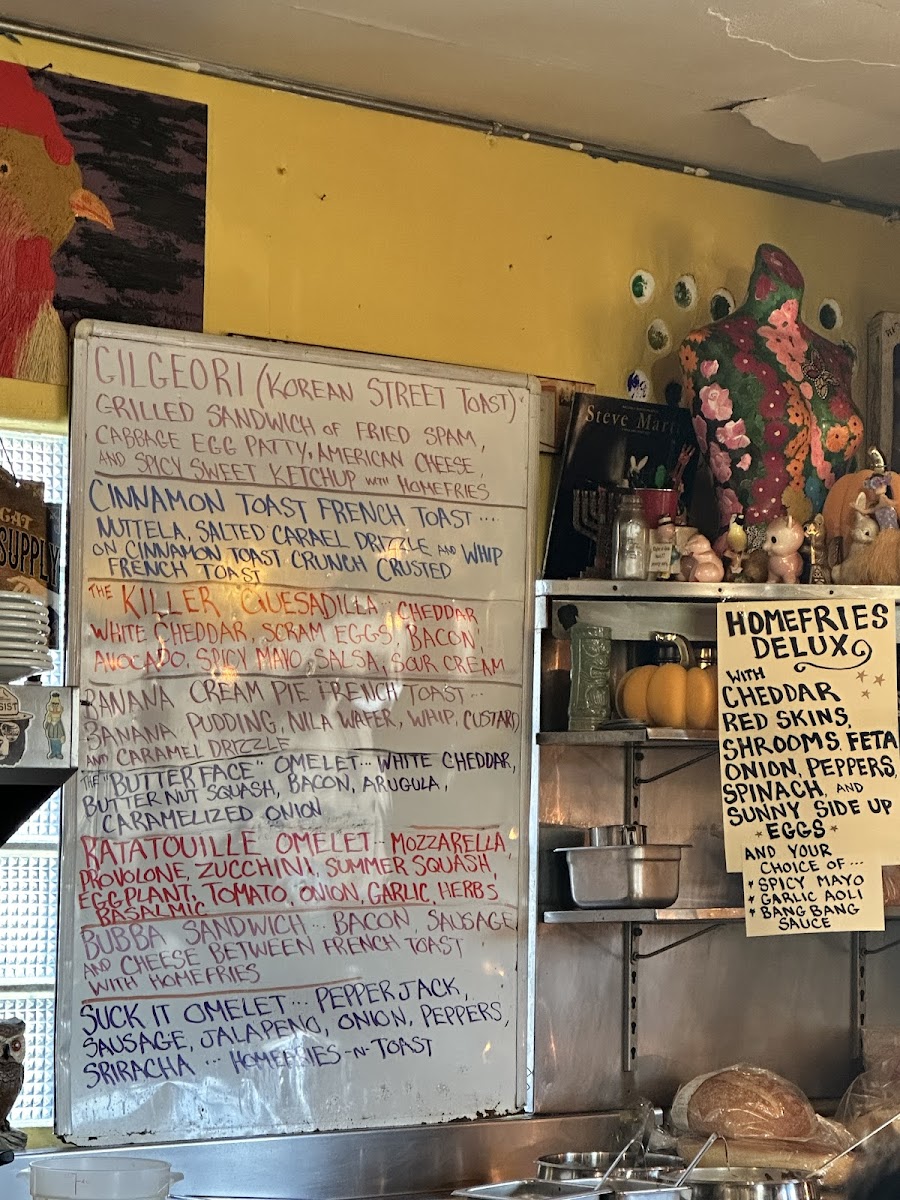 GILGEORI (KOREAN STREET TOAST)
GRILLED SANDWICH OF FRIED SPAM,
CABBAGE EGG PATTY, AMERICAN CHEESE,
AND SPICY SWEET KETCHUP WITH HOMEFRIES
CINNAMON TOAST FRENCH TOAST ....
NUTTELA, SALTED CARAEL DRIZZLE AND WHIP
ON CINNAMON TOAST CRUNCH CRUSTED
FRENCH TOAST
THE "KILLER" QUESADILLA ... CHEDDAR
WHITE CHEDDAR, SCRAM EGGS, BACON,
AVOCADO, SPICY MAYO, SALSA, SOUR CREAM
BANANA CREAM PIE FRENCH TOAST ...
BANANA PUDDING, NILA WAFER, WHIP, CUSTARD
AND CARAMEL DRIZZLE
THE "BUTTERFACE" OMELET ... WHITE CHEDDAR,
BUTTERNUT SQUASH, BACON, ARUGULA,
CARAMELIZED ONION
RATATOUILLE OMELET ... MOZZARELLA
PROVOLONE, ZUCCHINI, SUMMER SQUASH,
EGGPLANT, TOMATO, ONION, GARLIC, HERBS
BASALMIC
BUBBA SANDWICH ... BACON, SAUSAGE
AND CHEESE BETWEEN FRENCH TOAST
WITH HOMEFRIES
SUCK IT OMELET ... PEPPERJACK,
SAUSAGE, JALAPENO, ONION, PEPPERS,
SRIRACHA ... HOMEFRIES -N- TOAST
Steve
SUPPLY
HOMEFRIES
DELUX
WITH
CHEDDAR
RED SKINS,
SHROOMS, FETA
ONION, PEPPERS,
SPINACH, AND
SUNNY SIDE UP
EGGS
AND YOUR
CHOICE OF ...
* SPICY MAYO
* GARLIC AOLI
* BANG BANG
SAUCE